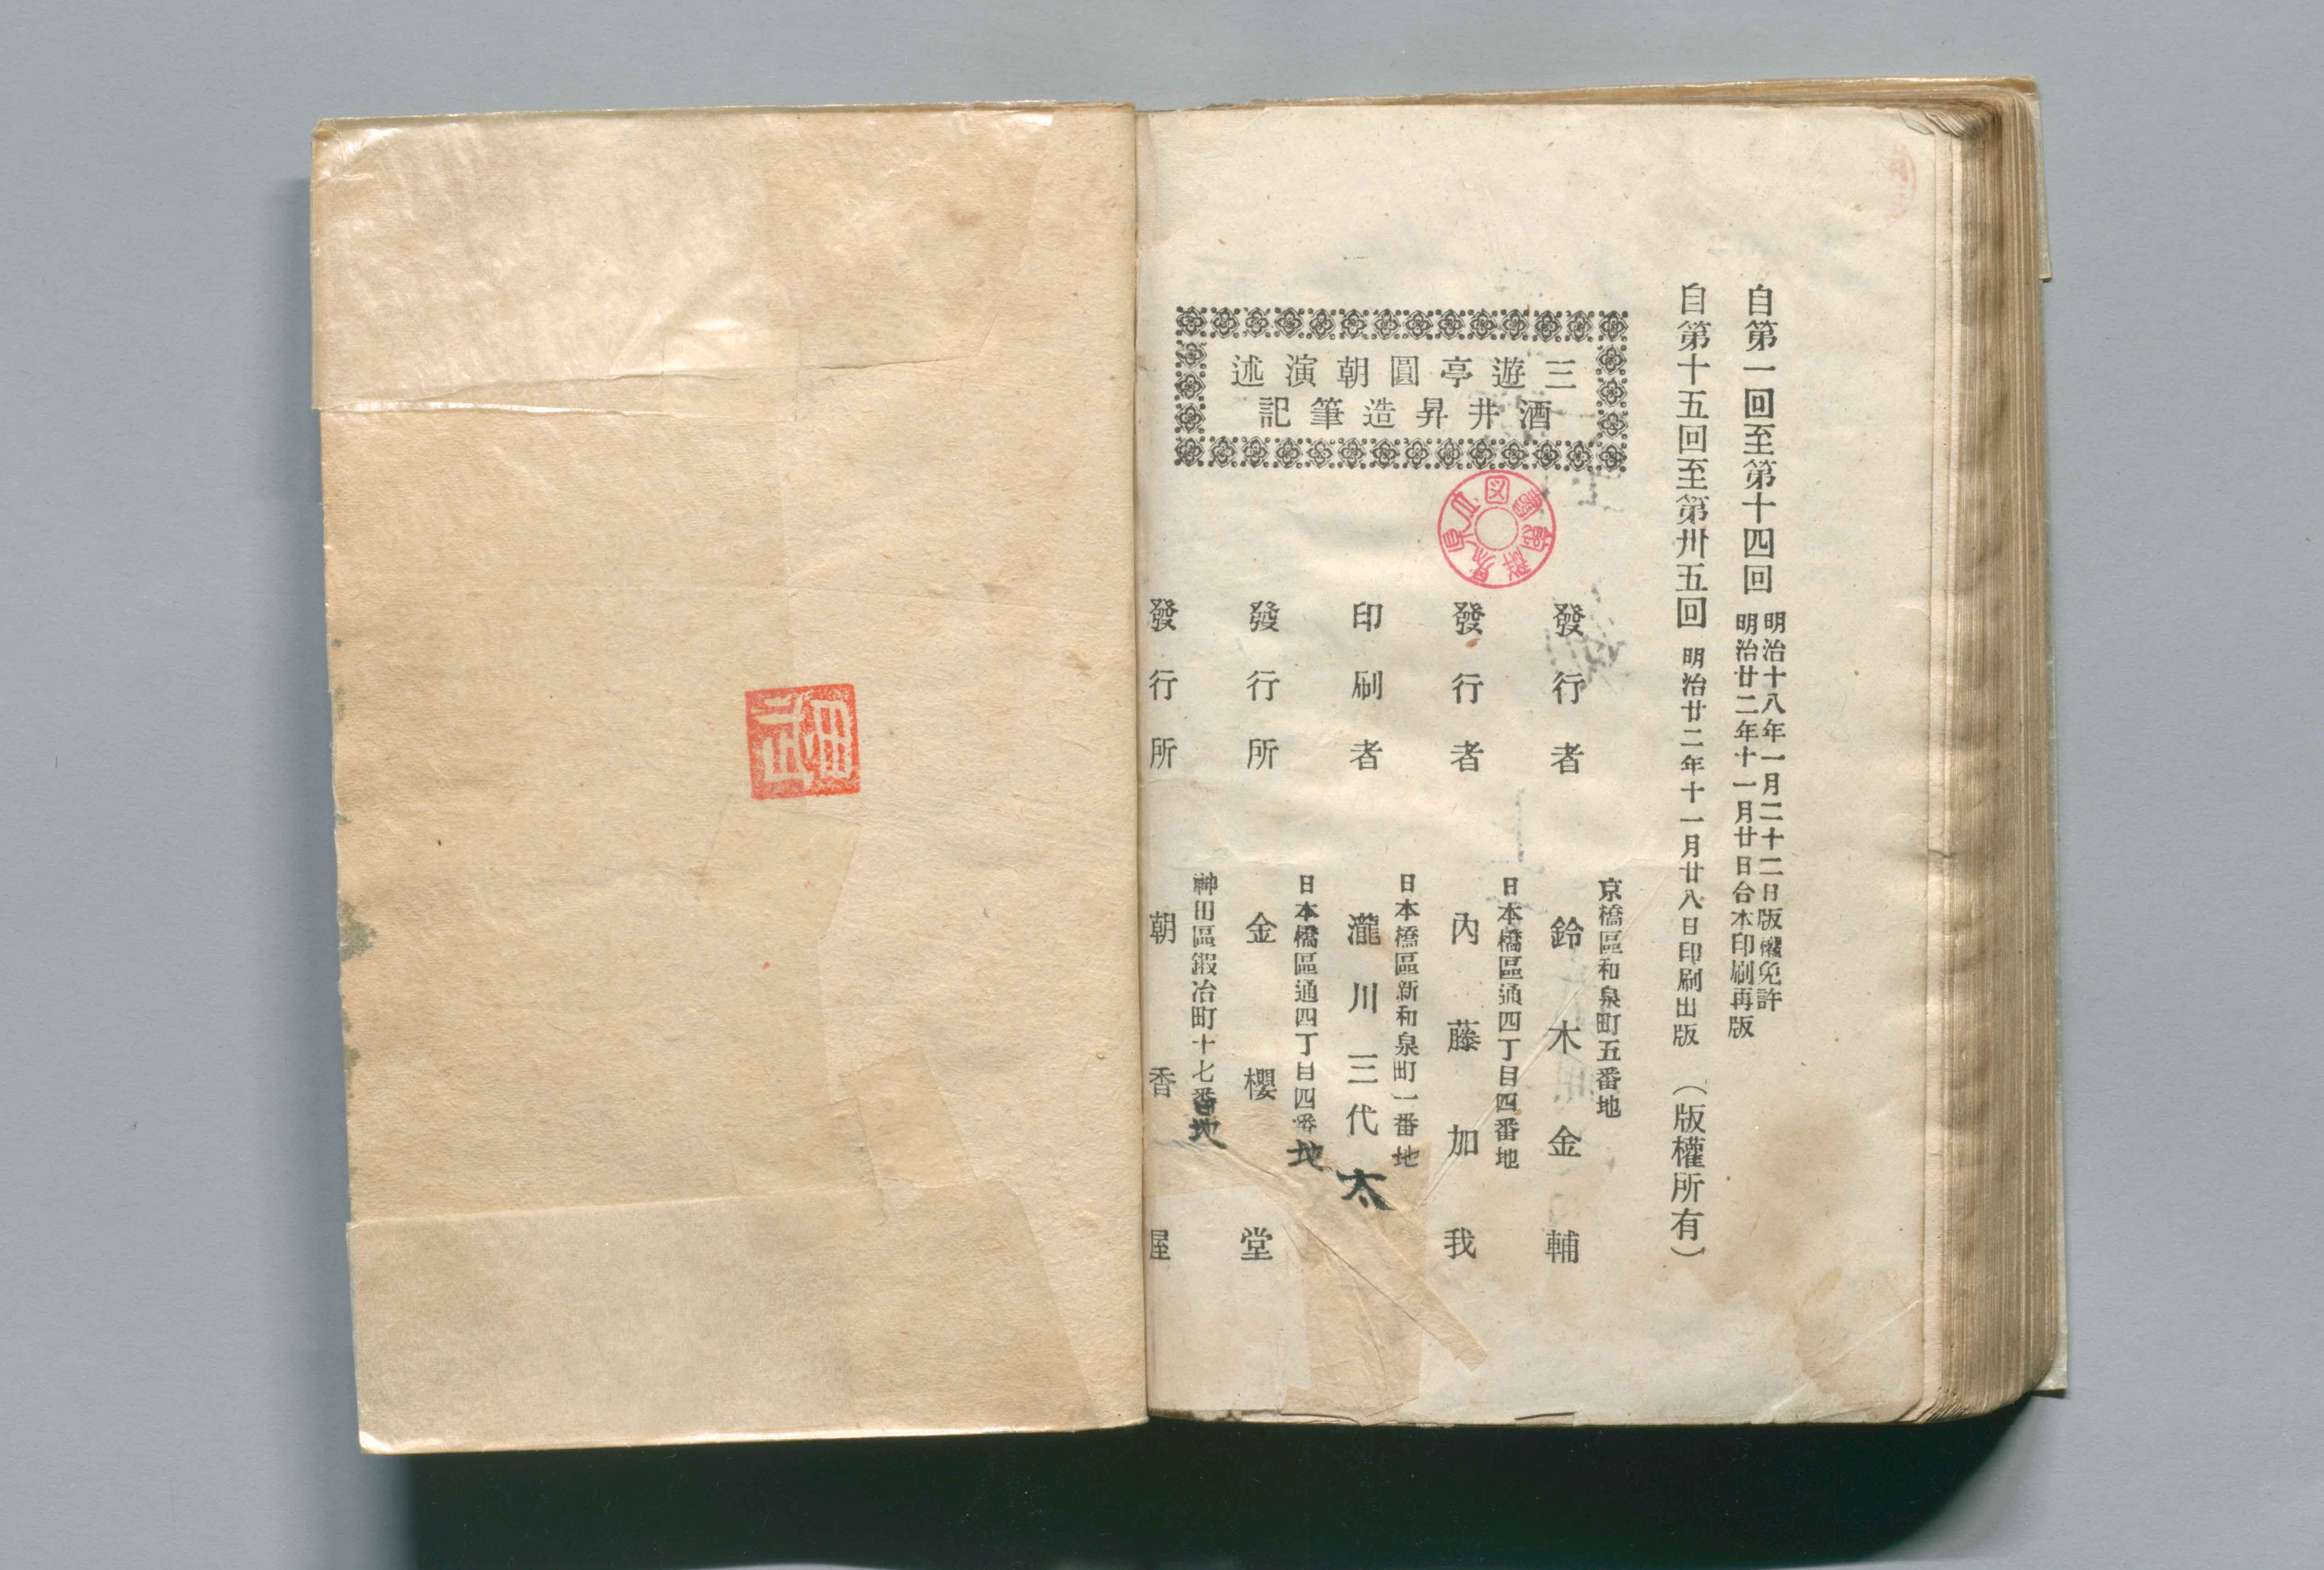 自第一回至第十四回
明治十八年一月二十二日版權免許
明治廿二年十一月廿日合本印刷再版
自第十五回至第卅五回 明治廿二年十一月廿八日印刷出版 (版權所有)
三遊亭圓朝演述
酒井昇造筆記
京橋區和泉町五番地
發行者 鈴木金輔
日本橋區通四丁目四番地
發行者 內藤加我
日本橋區新和泉町一番地
印刷者 瀧川三代太
日本橋區通四丁目四番地
發行所 金櫻堂
神田區鍜冶町十七番地
發行所 朝香屋